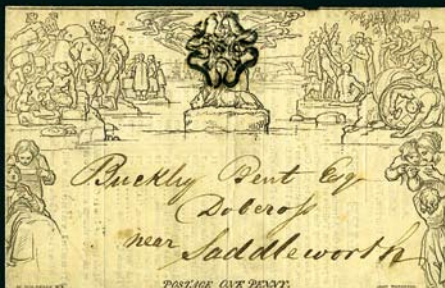 Buckley Bent Esq
Dobcross
near Saddleworth
POSTAGE ONE PENNY.